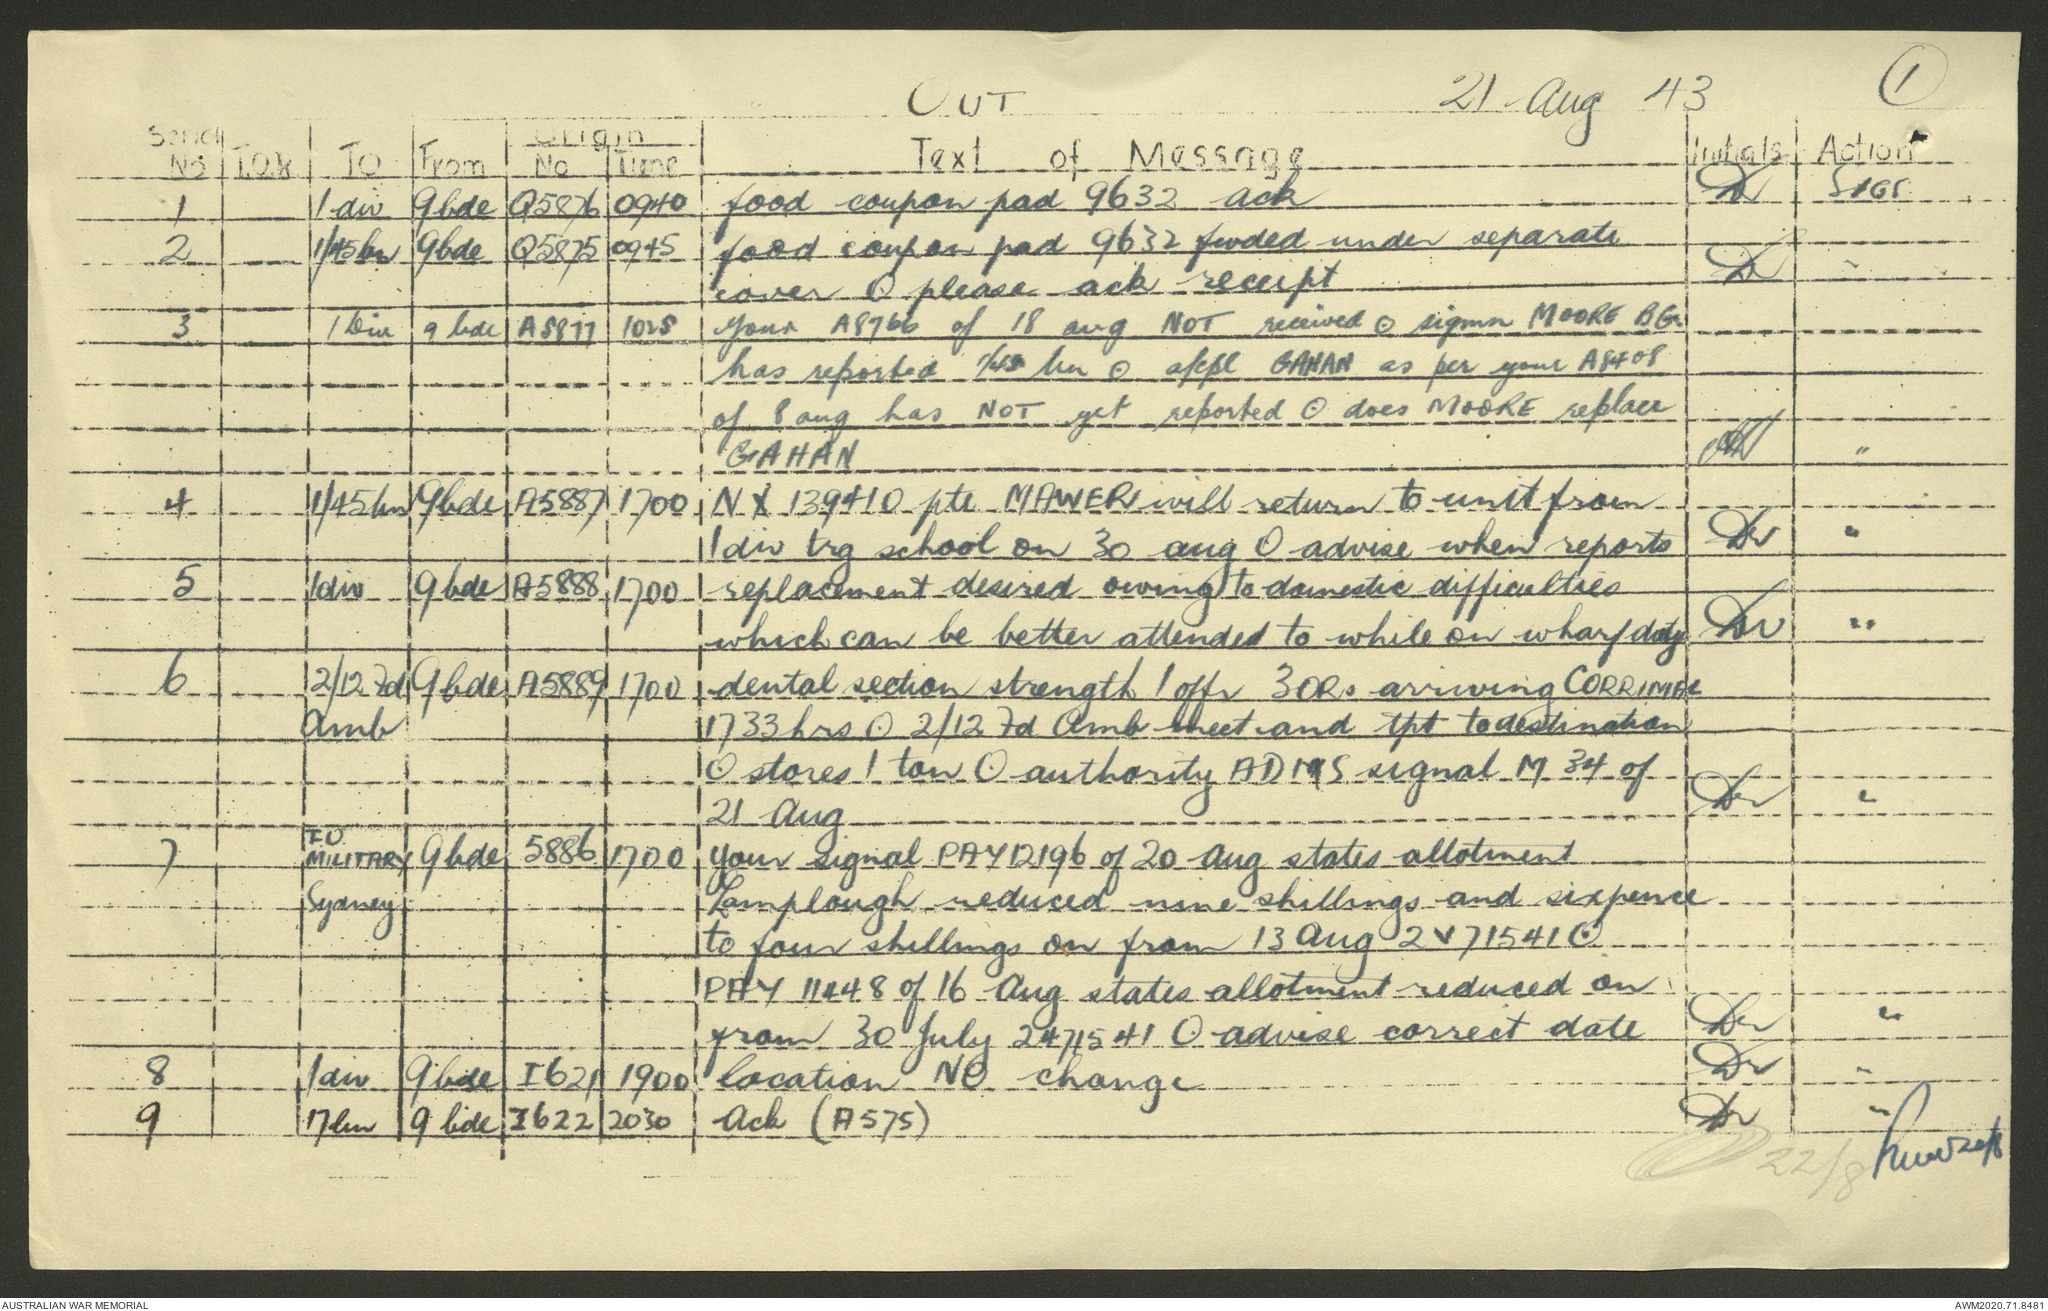 OUT 21 Aug 43 1
Serial No T.O.R TO From Origin No Time Text of Message Initials Action
1 1 div 9 bde Q5876 0940 food coupon pad 9632 ack SIGS
2 1/45 bn 9 bde Q5875 0945 food coupon pad 9632 fwded under separate
cover ⊙ please ack receipt "
3 1 Div 9 bde A5877 1025 your A8766 of 18 aug NOT received ⊙ sigmn MOORE BG
has reported 1/45 bn ⊙ a/cpl GAHAN as per your A8408
of 8 aug has NOT yet reported ⊙ does MOORE replace
GAHAN "
4 1/45 bn 9 bde A5887 1700 NX 139410 pte MAWER will return to unit from
1 div trg school on 30 aug ⊙ advise when reports "
5 1 div 9 bde A5888 1700 replacement desired owing to domestic difficulties
which can be better attended to while on wharf duty "
6 2/12 Fd 9 bde A5889 1700 dental section strength 1 offr 3 ORs arriving CORRIMAL
Amb 1733 hrs ⊙ 2/12 Fd Amb meet and tpt to destination
⊙ stores 1 ton ⊙ authority ADMS signal M 34 of "
21 Aug
7 MILITARY 9 bde 5886 1700 your signal PAY12196 of 20 Aug states allotment
Sydney Lamplough reduced nine shillings and sixpence
to four shillings on from 13 Aug 2V71541 ⊙
PAY 11448 of 16 Aug states allotment reduced on
from 30 July 2471541 ⊙ advise correct date "
8 1 div 9 bde I621 1900 location NO change "
9 17 bn 9 bde I622 2030 Ack (A575) "
22/8
AUSTRALIAN WAR MEMORIAL AWM2020.71.8481